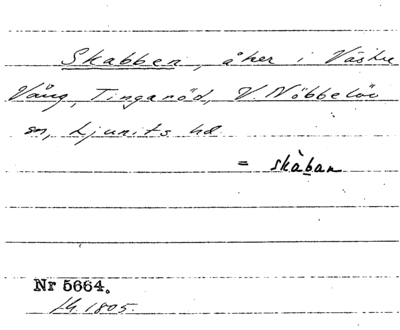 Skabben, åker i Västre
Vång, Tinganöd, V. Nöbbelöv
sn, Ljunits hd
= skàban
Nr 5664.
LH. 1805.